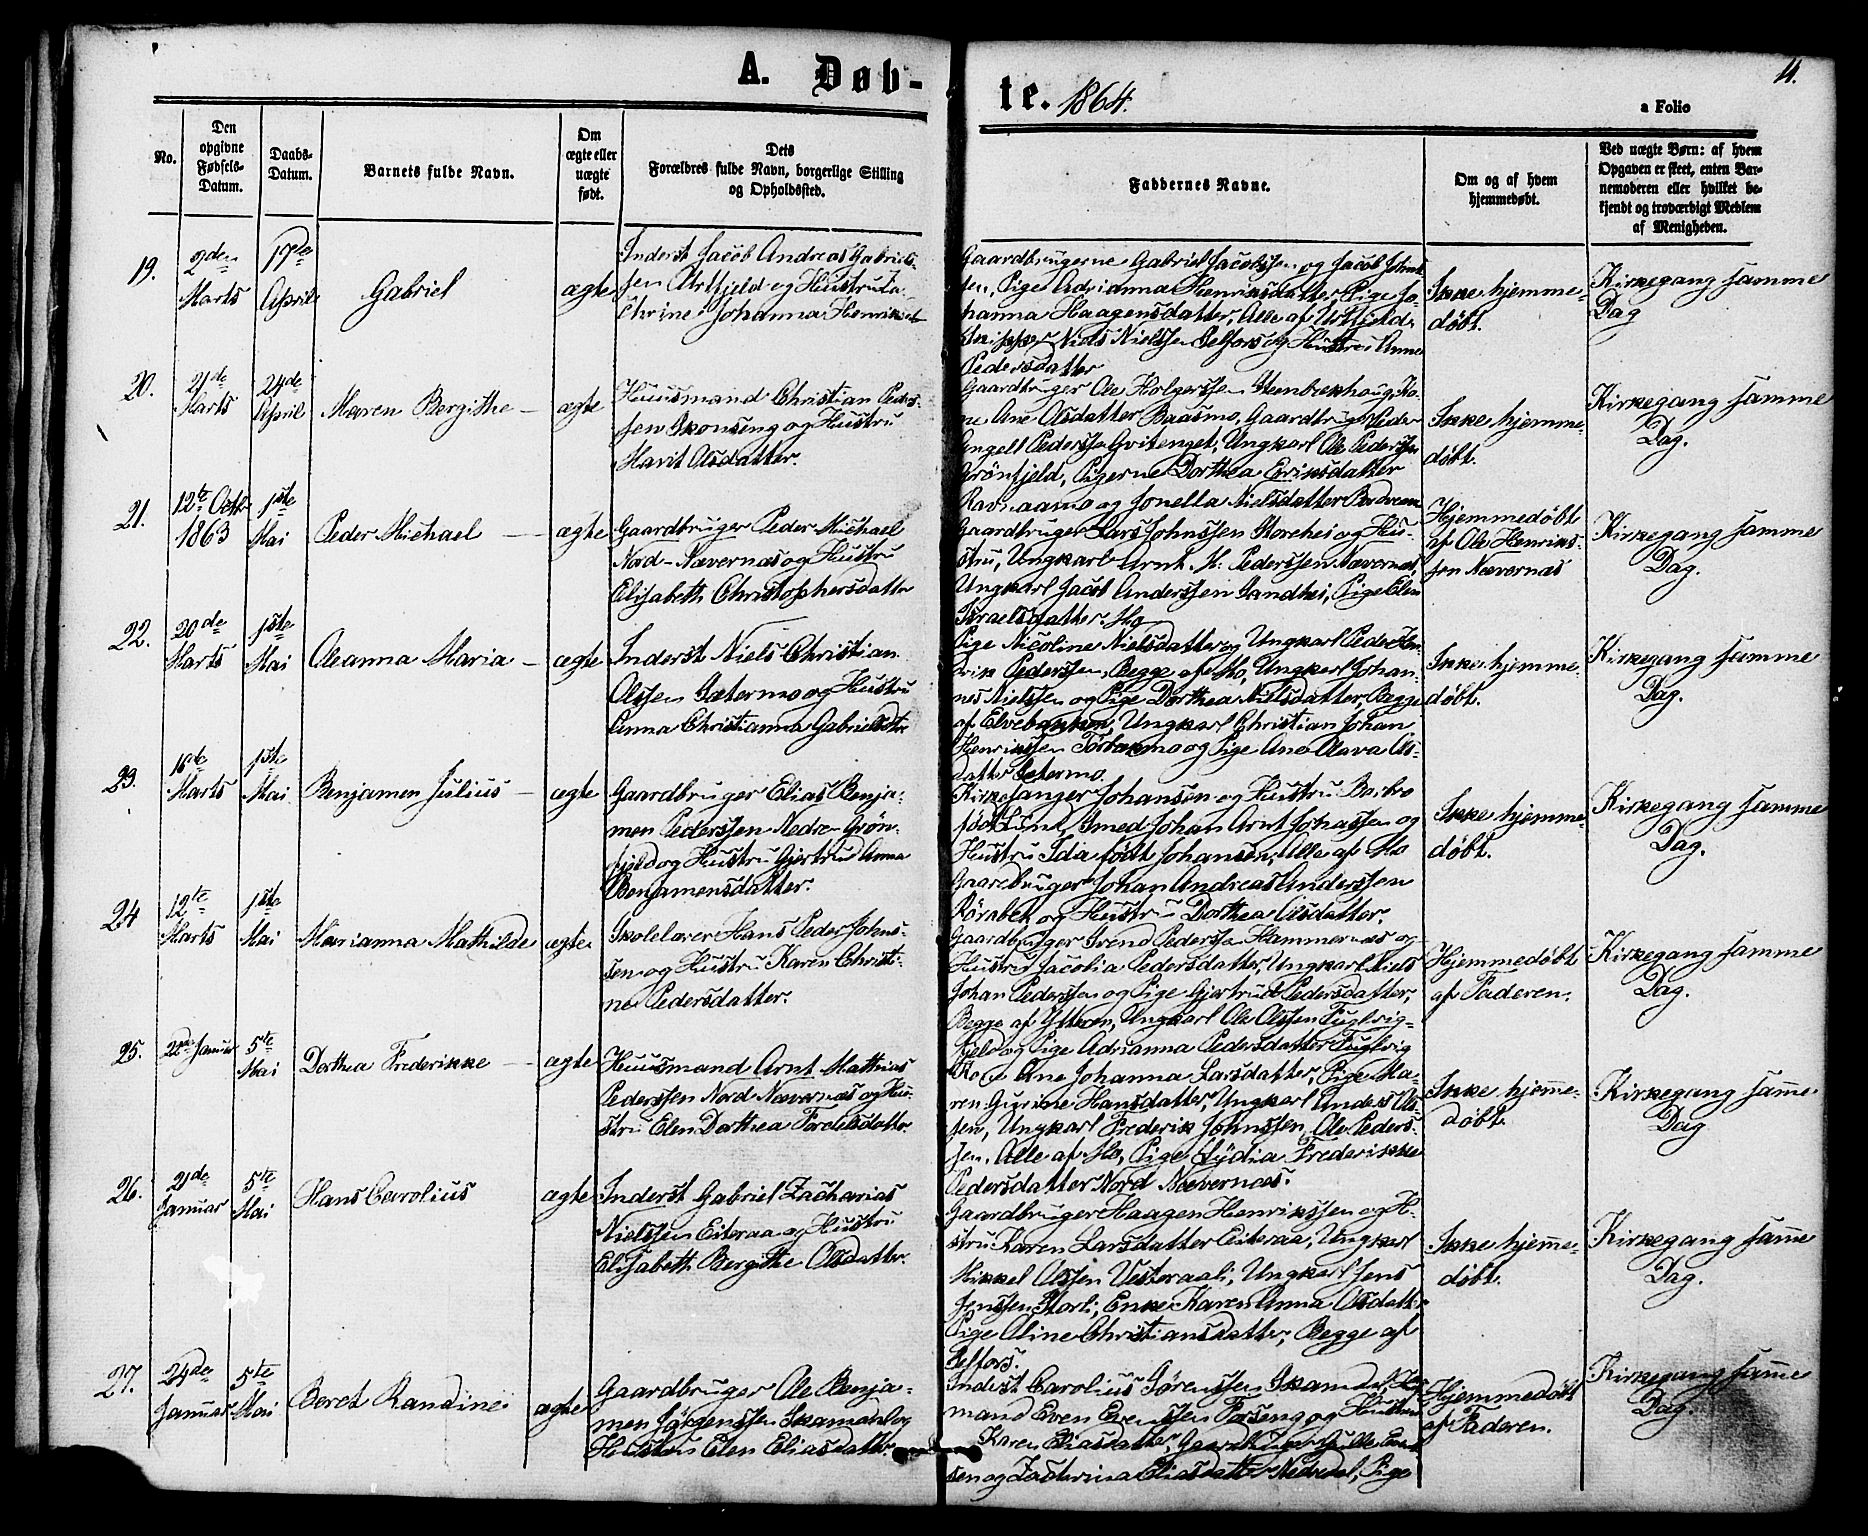 A. Døb-
te. 1864.
11.
a Folio
No.
Den opgivne Fødsels-Datum.
Daabs-Datum.
Barnets fulde Navn.
Om ægte eller uægte født.
Dets Forældres fulde Navn, borgerlige Stilling og Opholdssted.
Faddernes Navne.
Om og af hvem hjemmedøbt.
Ved uægte Børn: af hvem Opgaven er skeet, enten Barnemoderen eller hvilket bekjendt og troværdigt Medlem af Menigheden.
19.
2den Marts
17de April
Gabriel
ægte
Inderst Jacob Andreas Gabriel-
sen Urtfjeld og Hustru Ca-
thrine Johanna Henriksd
Gaardbrugerne Gabriel Jacobssen og Jacob Johns-
sen, Pige Adrianna Henriksdatter, Pige Jo-
hanna Haagensdatter, Alle af Urtfjeld.
Skipper Niels Nielssen Selfors og Hustru Anne
Pedersdatter
Ikke hjemme-
døbt.
Kirkegang samme
Dag
20.
21de Marts
24de April
Maren Bergithe —
ægte
Huusmand Christian Peder-
sen Skonseng og Hustru
Marit Olsdatter.
Gaardbruger Ole Holgerssen Stenbekhoug, Ko-
ne Ane Olsdatter Baasmo, Gaardbruger Peder
Engell Pederssen Hvitenget, Ungkarl Ole Pederssen
Grönfjeld, Pigerne Dorthea Eriksdatter
Ravnaamo og Jonella Nielsdatter
Ikke hjemme-
døbt.
Kirkegang samme
Dag.
21.
12te Octbr 1863
1ste Mai
Peder Michael —
ægte
Gaardbruger Peder Michael
Nord-Nævernæs og Hustru
Elisabeth Christophersdatter
Gaardbruger Lars Johnssen Storehei og Hu-
stru, Ungkarl Arnt M. Pederssen Nævernæs,
Ungkarl Jacob Anderssen Sandhei, Pige Elen
Israelsdatter Mo
Hjemmedøbt
af Ole Henriks-
sen Nævernæs
Kirkegang samme
Dag.
22.
20de Marts
1ste Mai
Oleanna Maria —
ægte
Inderst Niels Christian
Olssen Sætermo og Hustru
Anna Christianna Gabrielsdtr
Pige Nicoline Nielsdatter og Ungkarl Peder Hen-
drik Pederssen, Begge af Mo, Ungkarl Johan-
nes Nielssen og Pige Dorthea Nilsdatter, Begge
af Elvebakken, Ungkarl Christian Johan
Henrikssen Torbakmo og Pige Ane Olava Ols-
datter Sætermo.
Ikke hjemme-
døbt.
Kirkegang samme
Dag.
23.
16de Marts
1ste Mai
Benjamen Julius —
ægte
Gaardbruger Elias Benja-
men Pederssen Nedre-Grön-
fjeld og Hustru Gjertrud Anna
Benjamensdatter.
Kirkesanger Johansen og Hustru Barbro
født Lind, Smed Johan Arnt Johansen og
Hustru Ida født Johansen, Alle af Mo
Gaardbruger Johan Andreas Anderssen
Rörabek og Hustru Dorthea Olsdatter.
Ikke hjemme-
døbt.
Kirkegang samme
Dag.
24
12te Marts
1ste Mai
Marianna Mathilde
ægte
Skolelærer Hans Peder Johns-
sen og Hustru Karen Christi-
ne Pedersdatter.
Gaardbruger Svend Pederssen Hammernæs og
Hustru Jacobia Pedersdatter, Ungkarl Niels
Johan Pederssen og Pige Gjertrud Pedersdatter,
Begge af Ytteren, Ungkarl Ole Olssen Fuglvig-
fjeld og Pige Adrianna Pedersdatter Fuglvig
Hjemmedøbt
af Faderen.
Kirkegang samme
Dag.
25.
22de Januar
5te Mai
Dorthea Frederikke —
ægte
Huusmand Arnt Mathias
Pederssen Nord Nævernæs og Hu-
stru Elen Dorthea Fordelsdatter
Kone Ane Johanna Larsdatter, Pige Ma-
ren Gurine Hansdatter, Ungkarl Anders Ols-
sen, Ungkarl Frederik Johnssen, Ole Peders-
sen. Alle af Mo, Pige Lydia Frederikke
Pedersdatter Nord Nævernæs.
Ikke hjeme-
døbt.
Kirkegang same
Dag
26.
21de Januar
5te Mai
Hans Carolius
ægte
Inderst Gabriel Zacharias
Nielssen Eiteraa og Hustru
Elisabeth Bergithe Olsdatter.
Gaardbruger Haagen Henrikssen og Hu-
stru Karen Larsdatter Eiteraa, Ungkarl
Mikkel Olssen Vesteraali, Ungkarl Jens
Jenssen Storli, Enke Karen Anna Olsdatter
Pige Aline Christiansdatter, Begge af
Selfors.
Ikke hjeme-
døbt.
Kirkegang same
Dag.
27.
24de Januar
5te Mai
Beret Randine
ægte
Gaardbruger Ole Benja-
men Jörgenssen Skamdahl og
Hustru Elen Eliasdatter
Inderst Carolius Sörenssen Skamdal, Huus-
mand Even Evenssen Forseng og Hustru
Karen Eliasdatter, Gaardbruger Ole Even-
sen og Zacharina Eliasdatter Nedredal, Pige
Hjemmedøbt
af Faderen.
Kirkegang same
Dag.